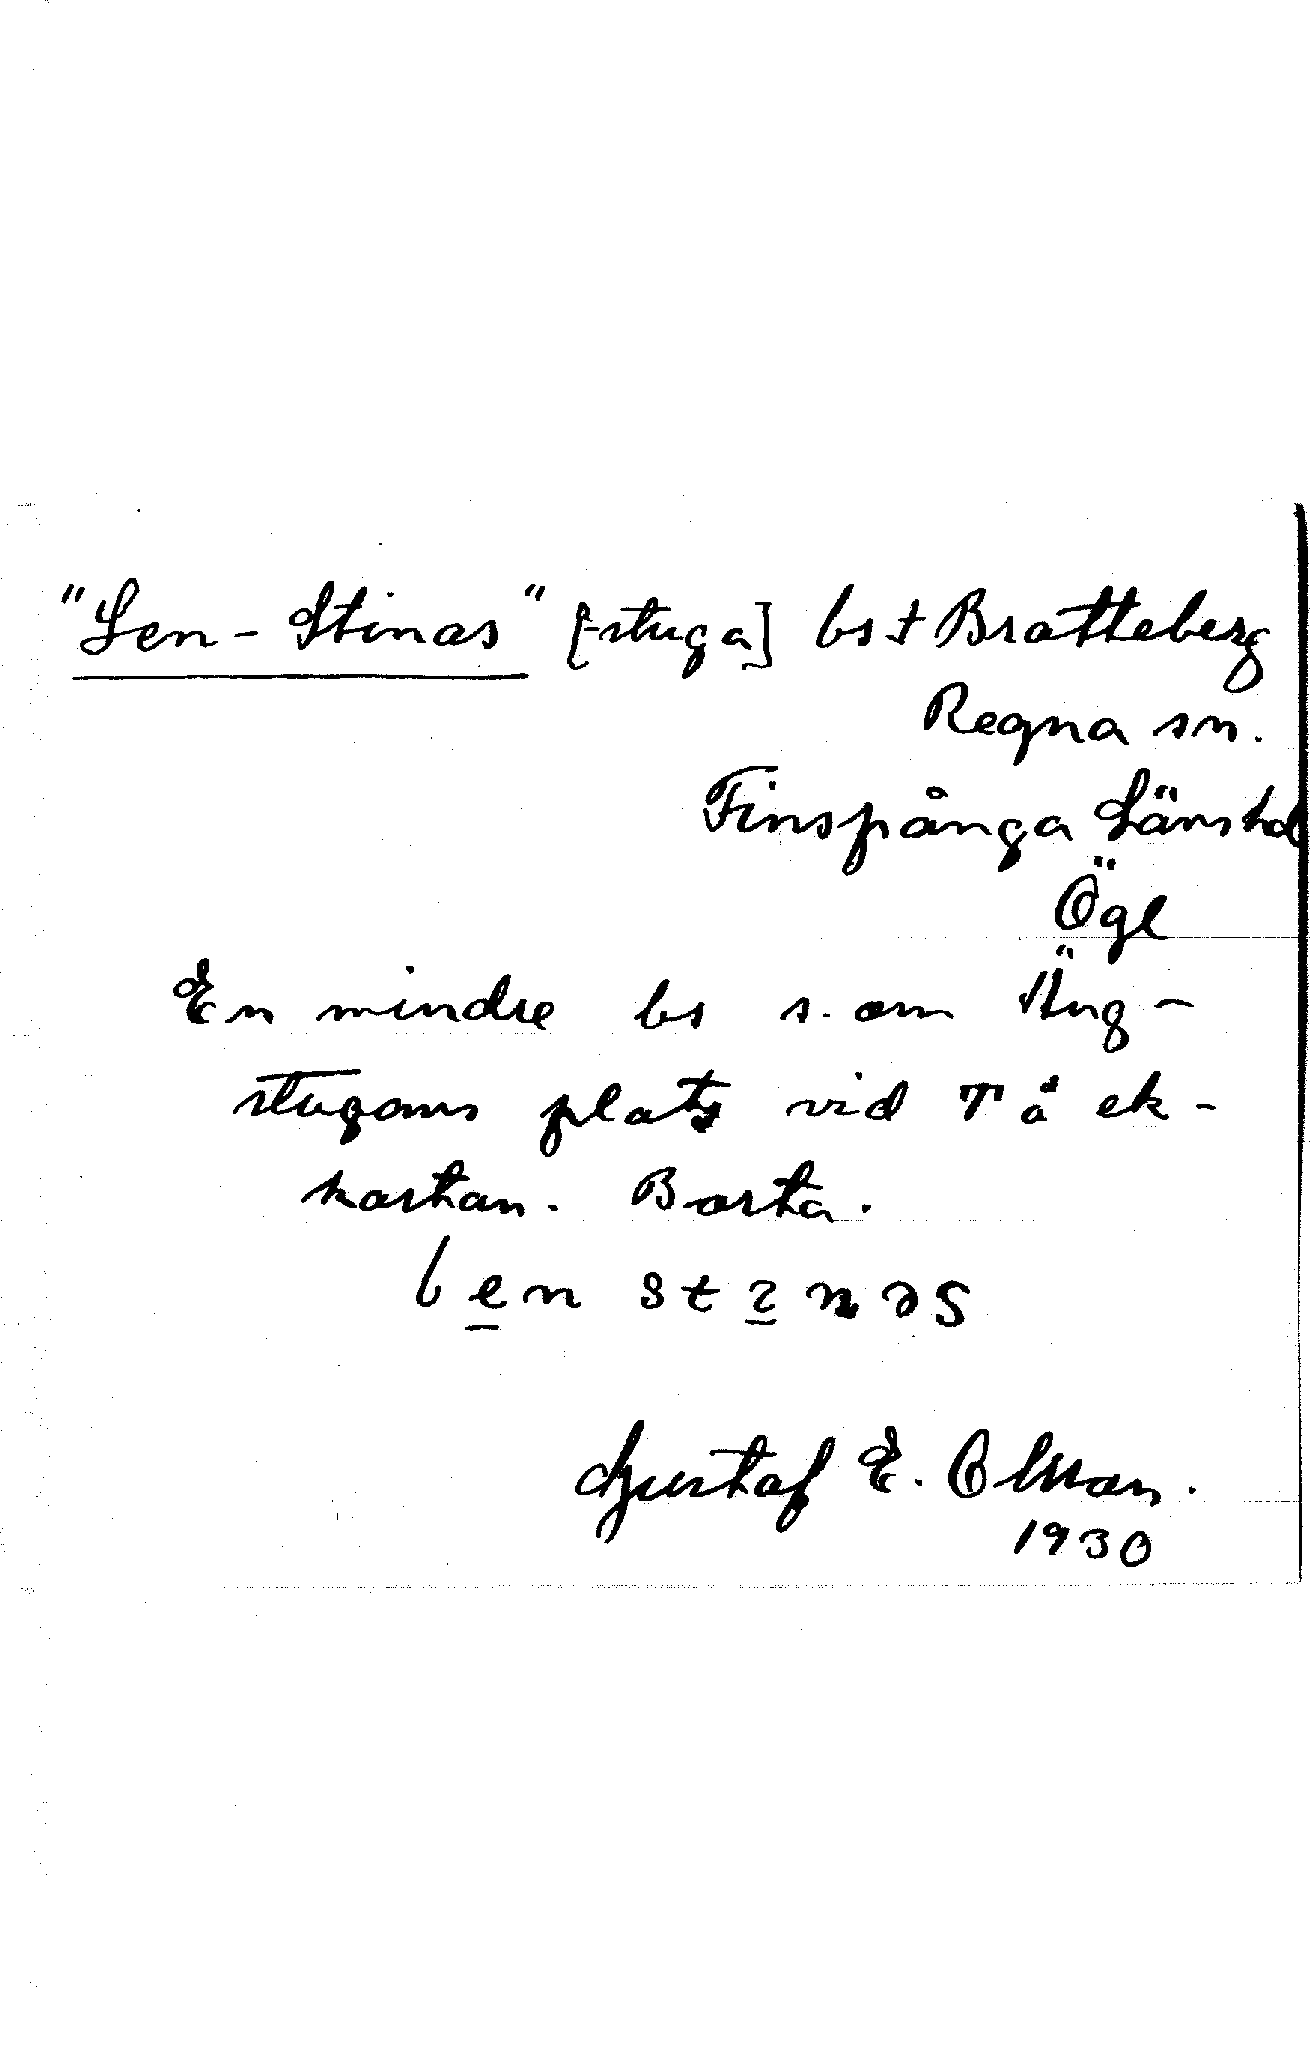 "Len-Stinas" [-stuga] bs t Bratteberg
Regna sn.
Finspånga Länshd
Ögl
En mindre bs s. om Äng-
stugans plats vid Tå ek-
kartan. Borta.
len
Gustaf E. Olsson.
1930